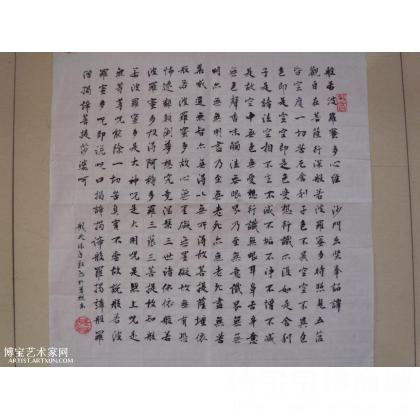 般若波羅蜜多心經 沙門玄奘奉詔譯
觀自在菩薩行深般若波羅蜜多時照見五蘊
皆空度一切苦厄舍利子色不異空空不異色
色即是空空即是色受想行識亦復如是舍利
子是諸法空相不生不滅不垢不淨不增不減
是故空中無色無受想行識無眼耳鼻舌身意
無色聲香味觸法無眼界乃至無意識界無無
明亦無無明盡乃至無老死亦無老死盡無苦
集滅道無智亦無得以無所得故菩提薩埵依
般若波羅蜜多故心無罣礙無罣礙故無有恐
怖遠離顛倒夢想究竟涅槃三世諸佛依般若
波羅蜜多故得阿耨多羅三藐三菩提故知般
若波羅蜜多是大神咒是大明咒是無上咒是
無等等咒能除一切苦真實不虛故說般若波
羅蜜多咒即說咒曰揭諦揭諦般羅揭諦般羅
僧揭諦菩提莎婆訶
博宝艺术家网
ARTIST.ARTXUN.COM